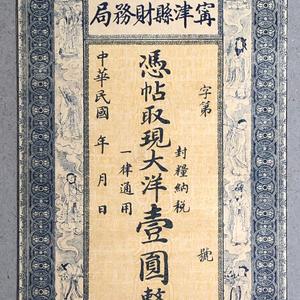 甯津縣財務局
字第　號
封糧納稅
憑帖取現大洋壹圓整
一律通用
中華民國　年　月　日